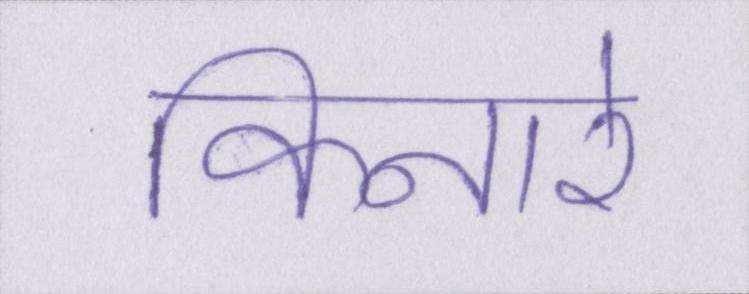 किनारे